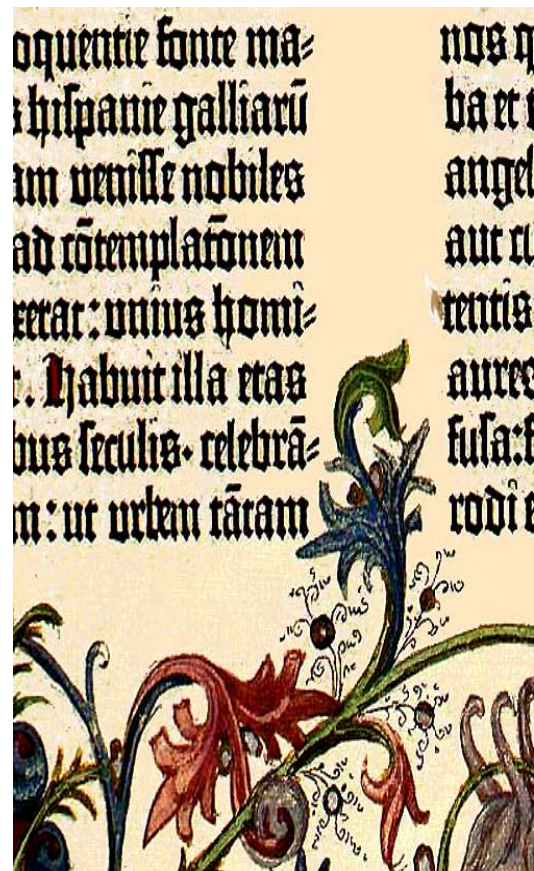 oquentie fonte ma⸗
s hispanie galliarū
am venisse nobiles
ad cōtemplatōnem
xerat: unius homi⸗
. Habuit illa etas
bus seculis. celebrā⸗
m: ut urbem tātam
nos q
ba et
angel
aut
tentis
auree
fusa:
rodi e